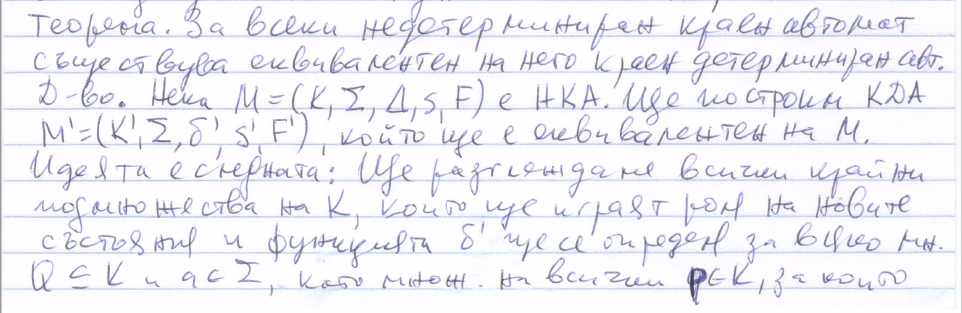 Теорема. За всеки недетерминиран краен автомат
съществува еквивалентен на него краен детерминиран авт.
Д-во. Нека M=(K,Σ,Δ,s,F) е НКА. Ще построим КДА
M'=(K',Σ,δ',s',F'), който ще е еквивалентен на M.
Идеята е следната: Ще разглеждаме всички крайни
подмножества на K, които ще играят роля на новите
състояния и функцията δ' ще се определя за всяко мн.
Q ⊆ K и a ∈ Σ, като множ. на всички p∈K, за които